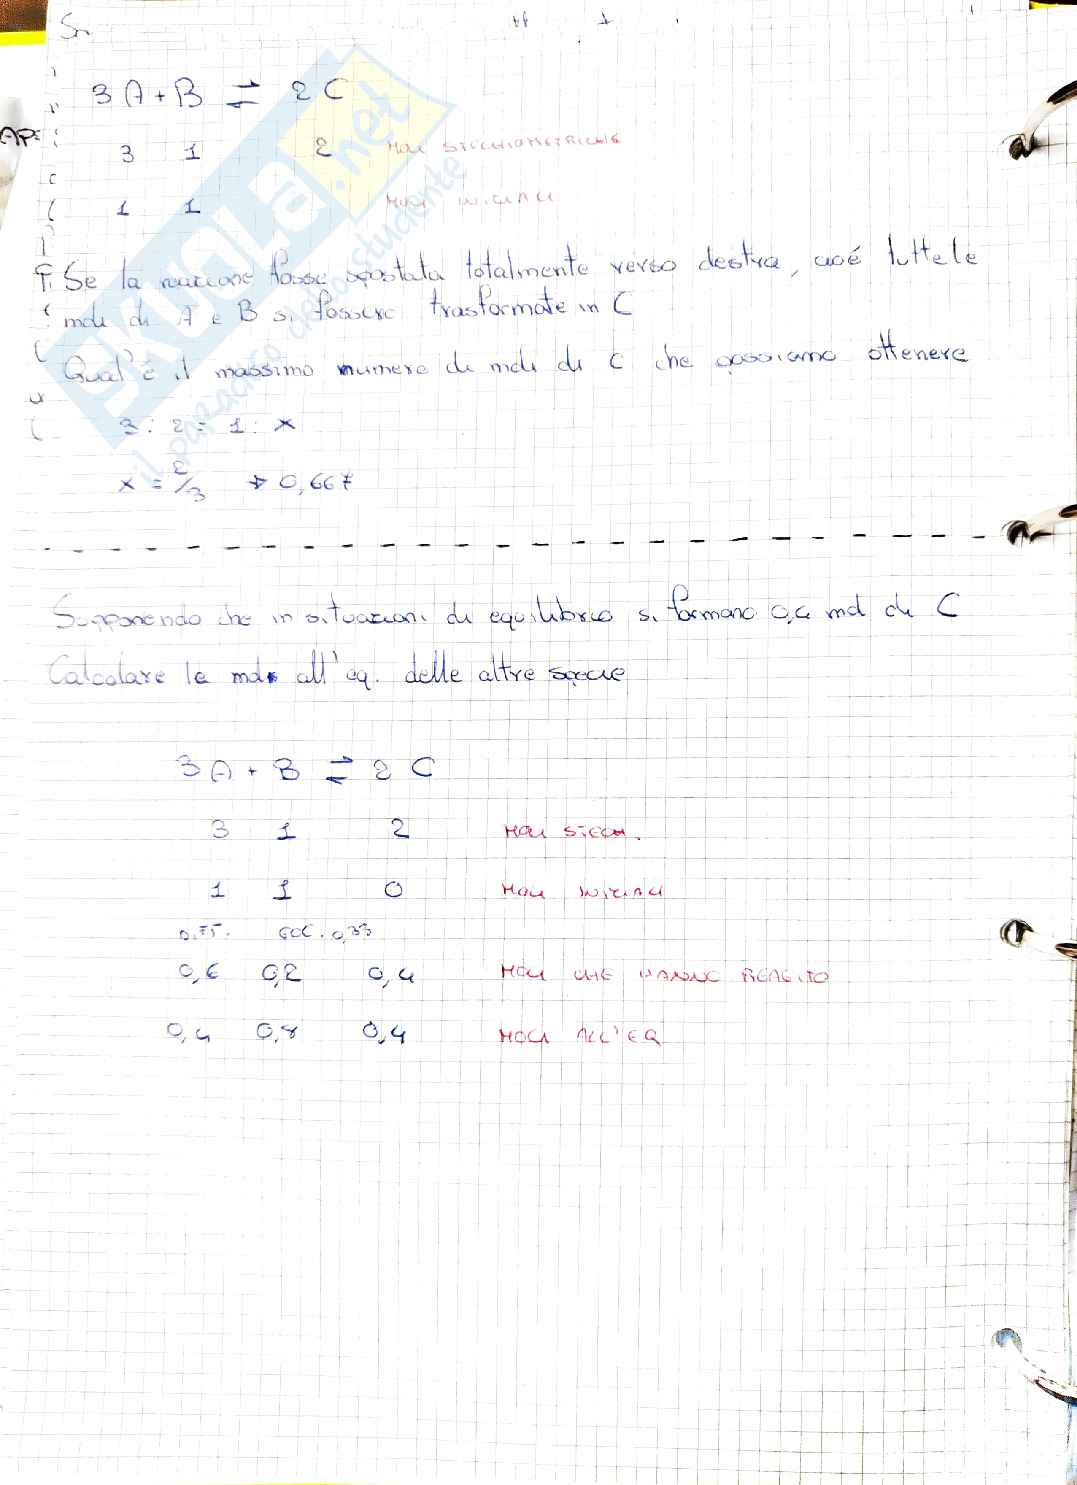 3A + B ⇌ 2C
AP:
3 1 2 MOLI STECHIOMETRICHE
1 1 MOLI INIZIALI
Se la reazione fosse spostata totalmente verso destra, cioé tutte le
moli di A e B si fossero trasformate in C
Qual'è il massimo numero di moli di C che possiamo ottenere
3 : 2 = 1 : x
x = 2/3 → 0,667
SKUOLA.net
il paradiso dello studente
Supponendo che in situazioni di equilibrio si formano 0,4 mol di C
Calcolare le moli all'eq. delle altre specie
3A + B ⇌ 2C
3 1 2 MOLI STECH.
1 1 0 MOLI INIZIALI
ECC. 0,33
0,6 0,2 0,4 MOLI CHE HANNO REAGITO
0,4 0,8 0,4 MOLI ALL'EQ